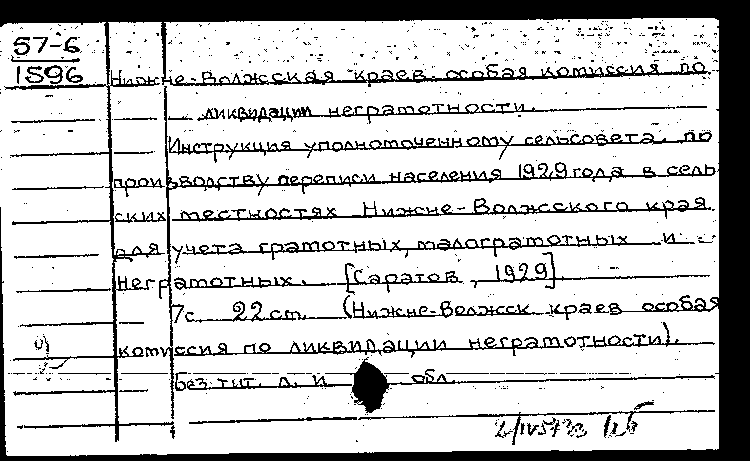 57-6
1596
Нижне-Волжсская краев. особая комиссия по
ликвидации неграмотности.
Инструкция уполномоченному сельсовета по
производству переписи населения 1929 года в сель
ских местностях Нижне-Волжсского края
для учета грамотных, малограмотных и
неграмотных. [Саратов, 1929].
7с. 22 cm. (Нижне-Волжсск краев особая
комиссия по ликвидации неграмотности).
Без тит. л. и обл.